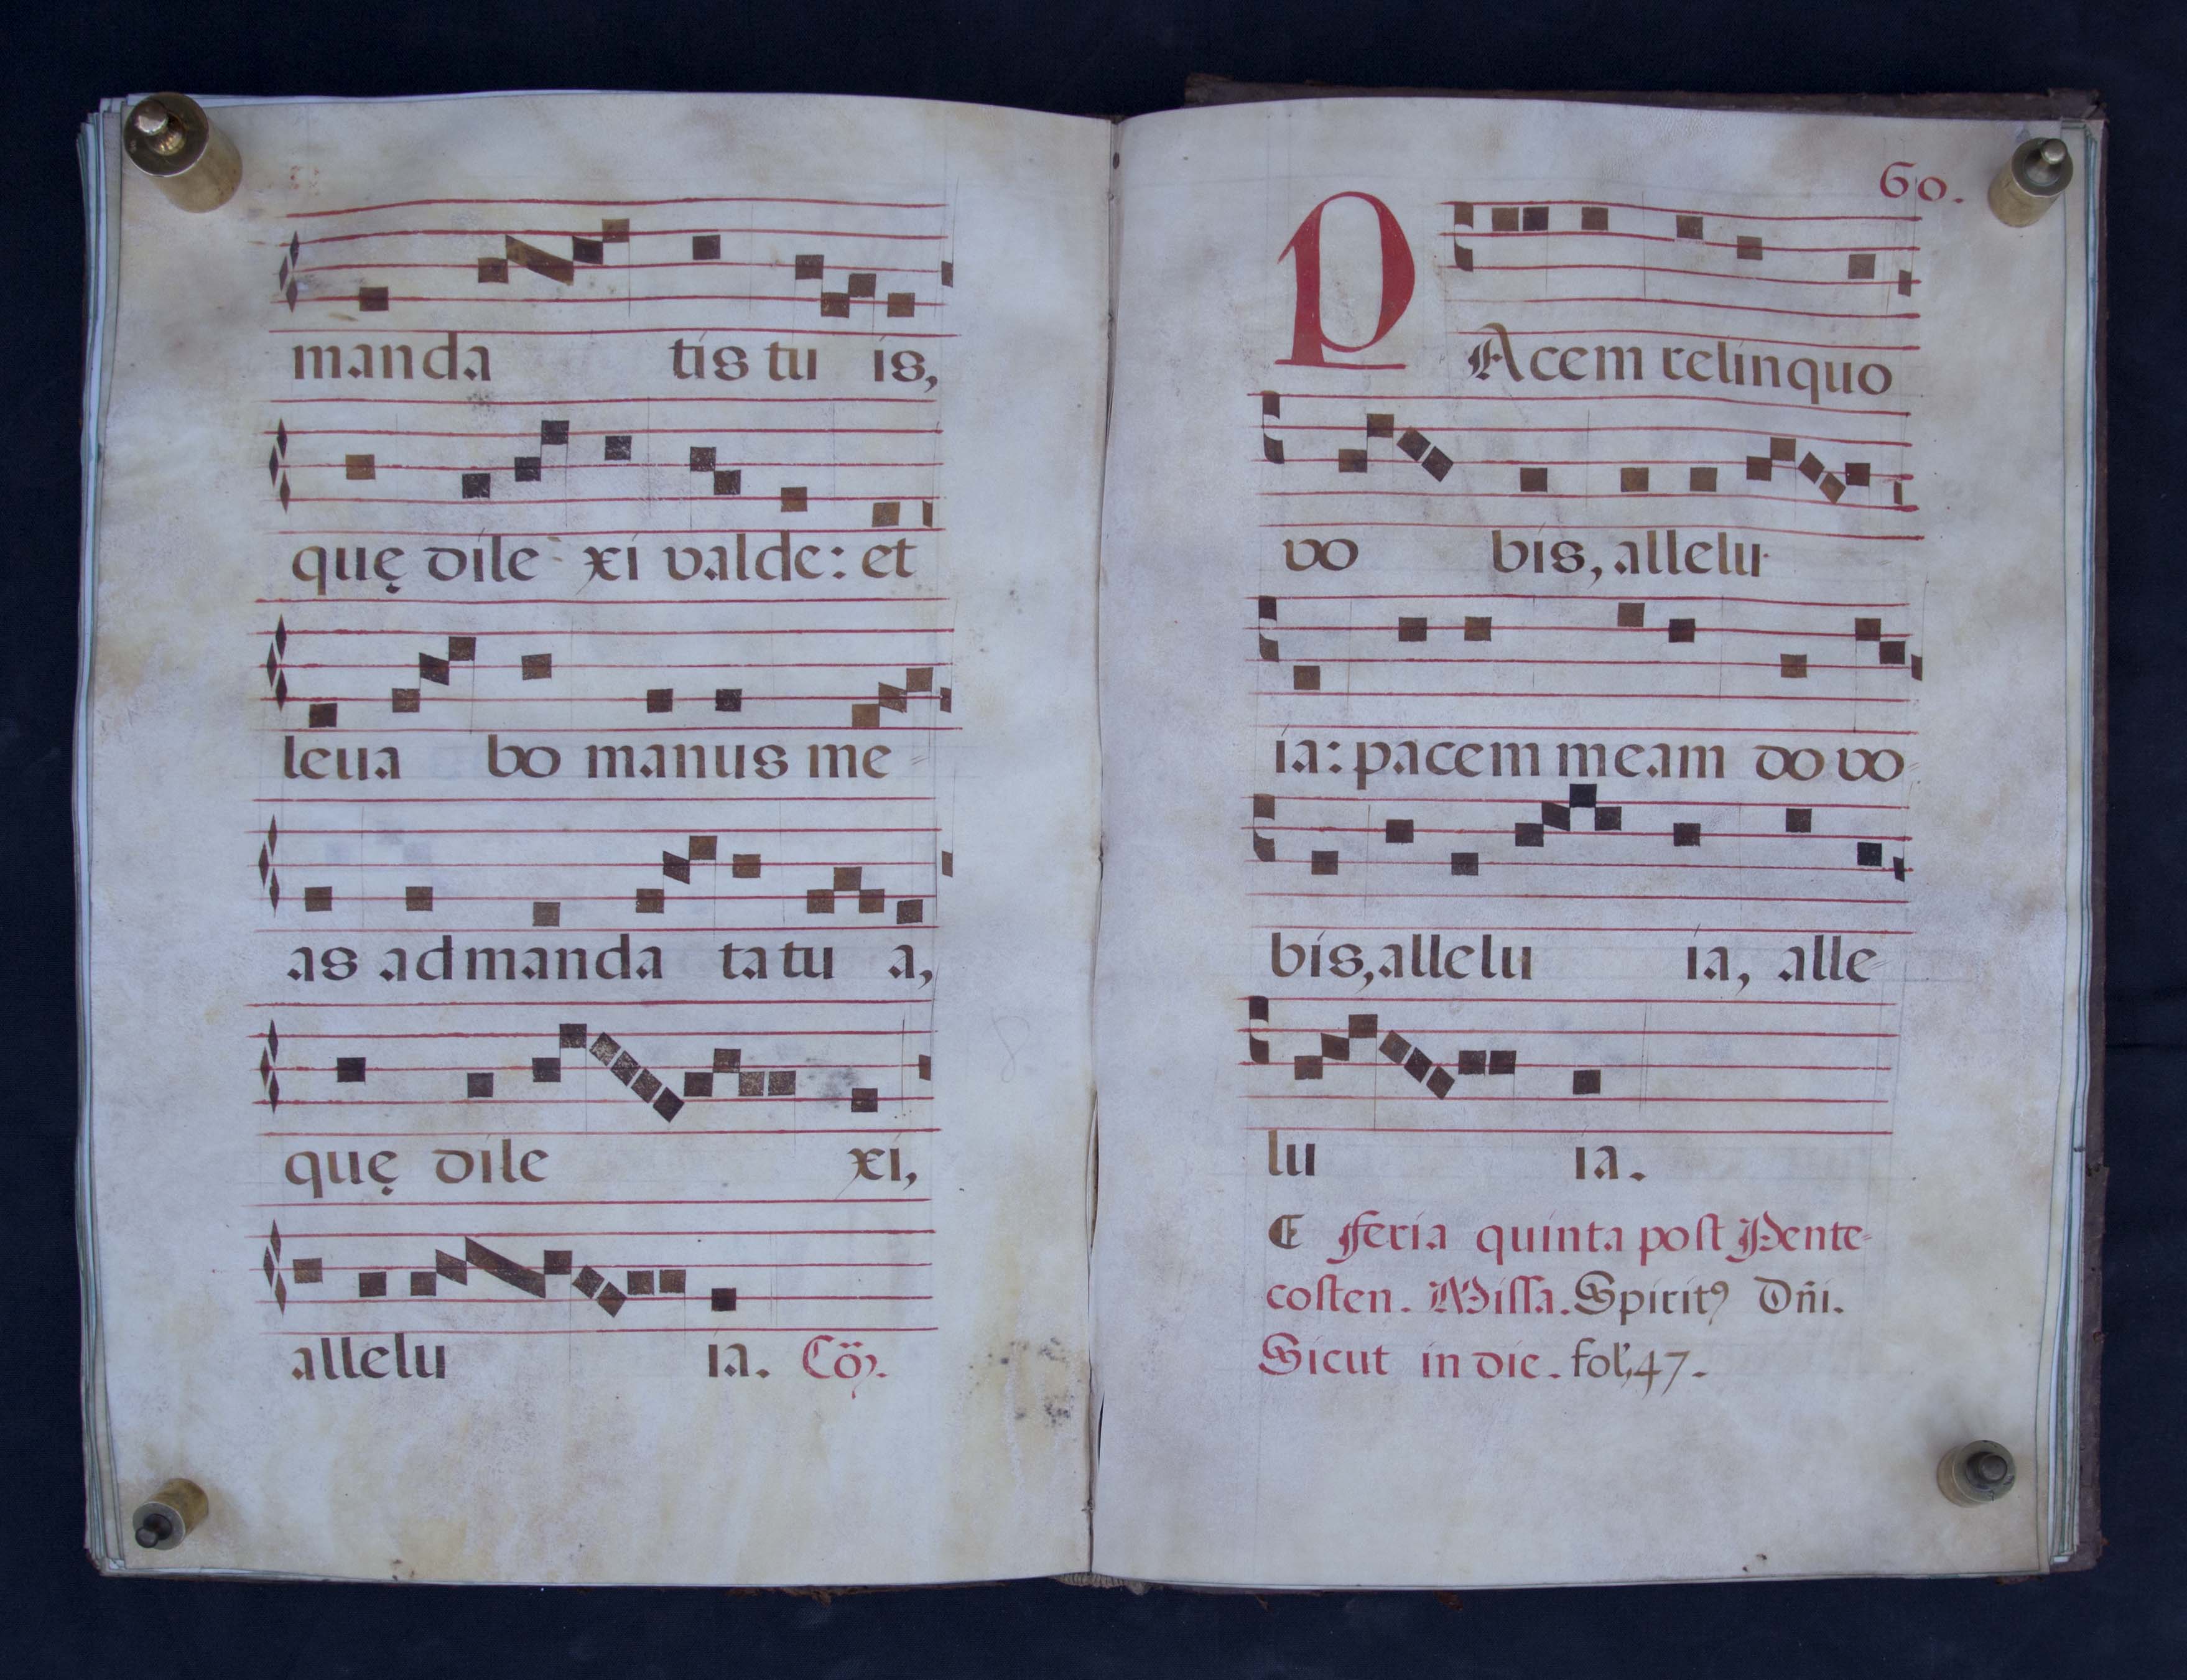 manda tis tu is,
quę dile xi valde: et
leua bo manus me=
as ad manda ta tu a,
quę dile xi,
allelu ia. Cõ.
60.
PAcem relinquo
vo bis, allelu-
ia: pacem meam do vo=
bis, allelu ia, alle=
lu ia.
Feria quinta post Pente=
costen. Missa. Spiritꝰ Dñi.
Sicut in die. fol. 47.